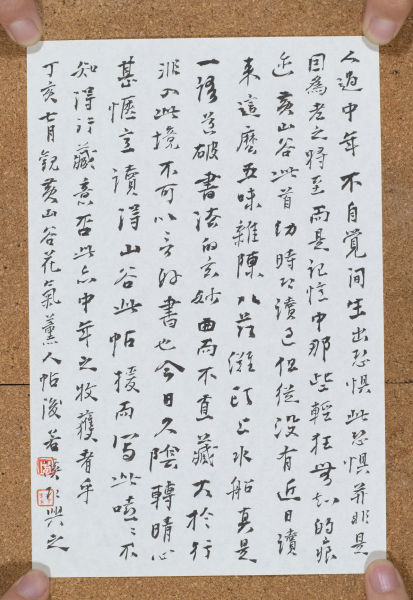 人過中年不自覺間生出恐懼此恐懼并非是
因為老之將至而是記憶中那些輕狂無知的痕
近黃山谷此首幼時即讀過但從沒有近日讀
來這麼五味雜陳八節灘頭上水船真是
一語道破書法的玄妙曲而不直藏大於行
非入此境不可以言好書也今日久陰轉晴心
甚愜意讀得山谷此帖援而寫此嘻嘻不
知得行藏意否此亦中年之收穫者乎
丁亥七月觀黃山谷花氣薰人帖後 若